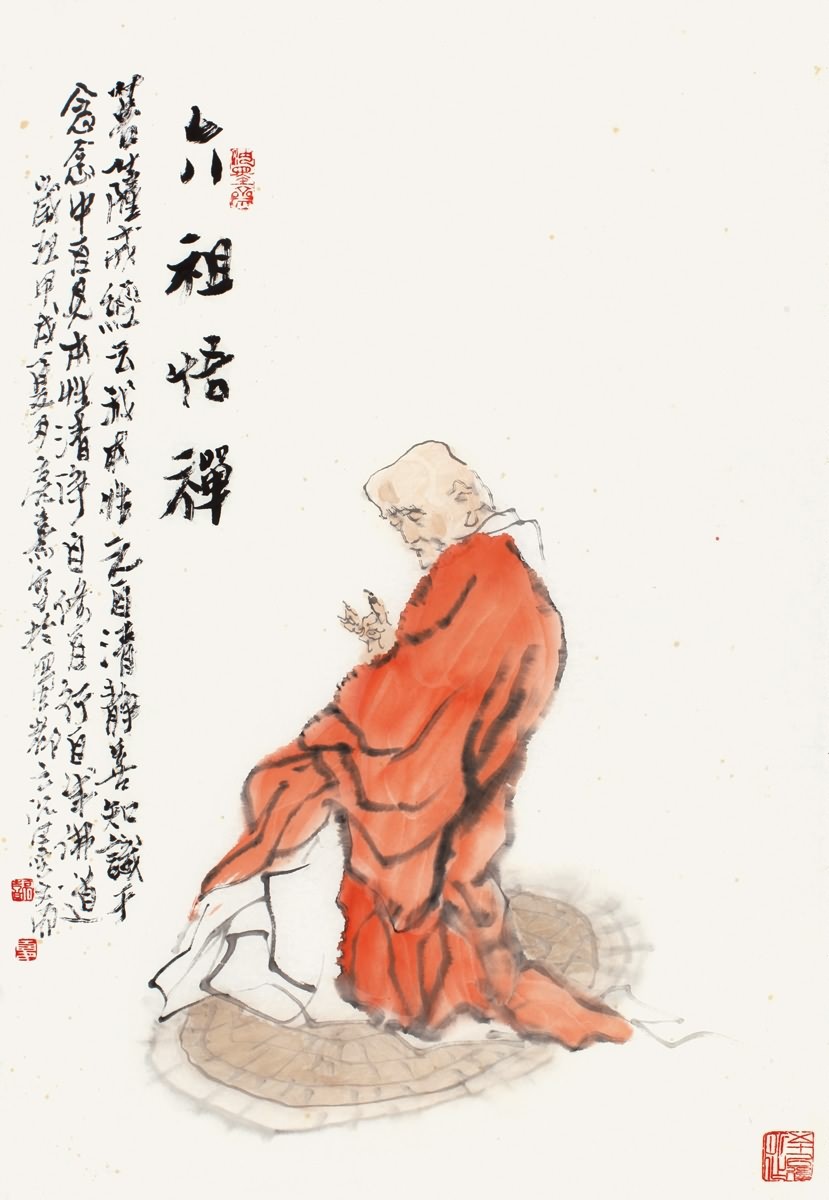 六祖悟禪
菩薩戒經云我本性元自清靜善知識于
念念中自見本性清淨自修自行自成佛道
歲在甲戌夏月寫於四川成都